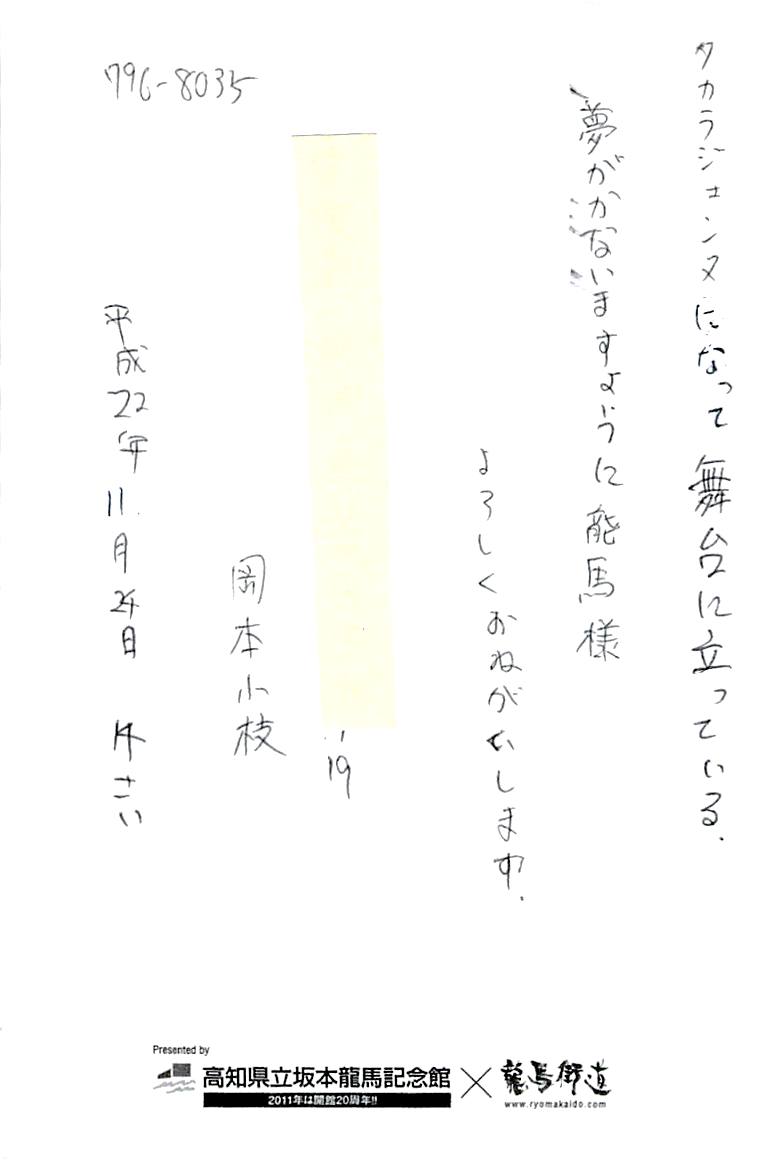 タカラジェンヌになって舞台に立っている.
夢がかないますように 龍馬様
よろしくおねがいします.
19
岡本小枝
796-8035
平成22年11月24日 才さい
Presented by
高知県立坂本龍馬記念館
2011年は開館20周年!!
×
龍馬街道
www.ryomakaido.com